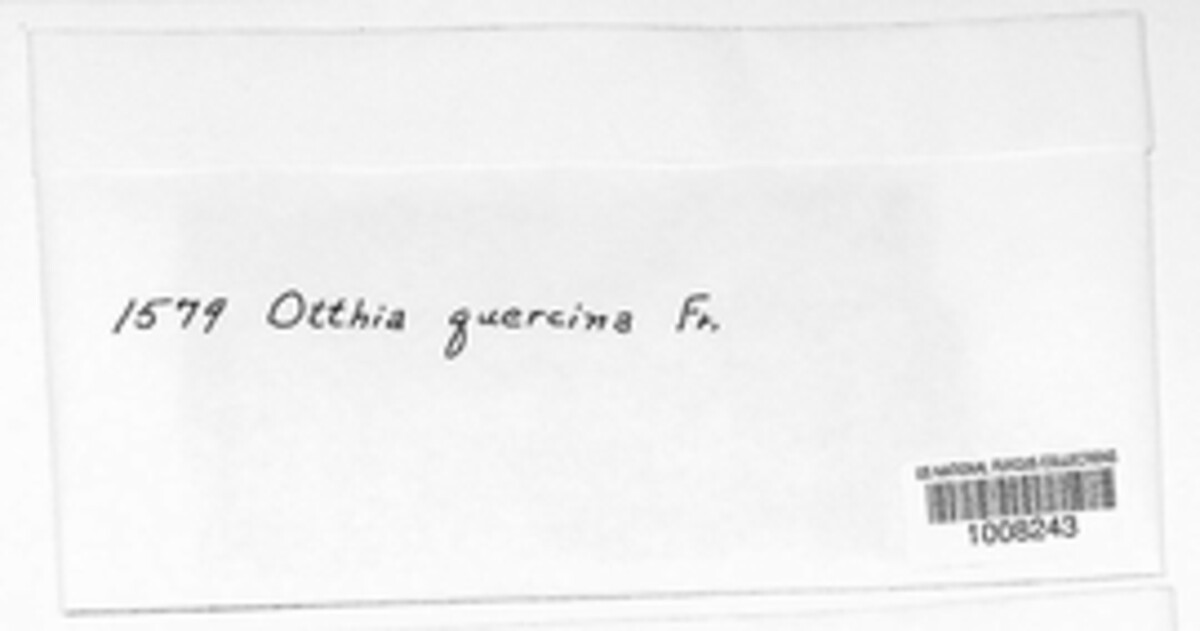 1579 Otthia quercina Fr.
US NATIONAL FUNGUS COLLECTIONS
1008243